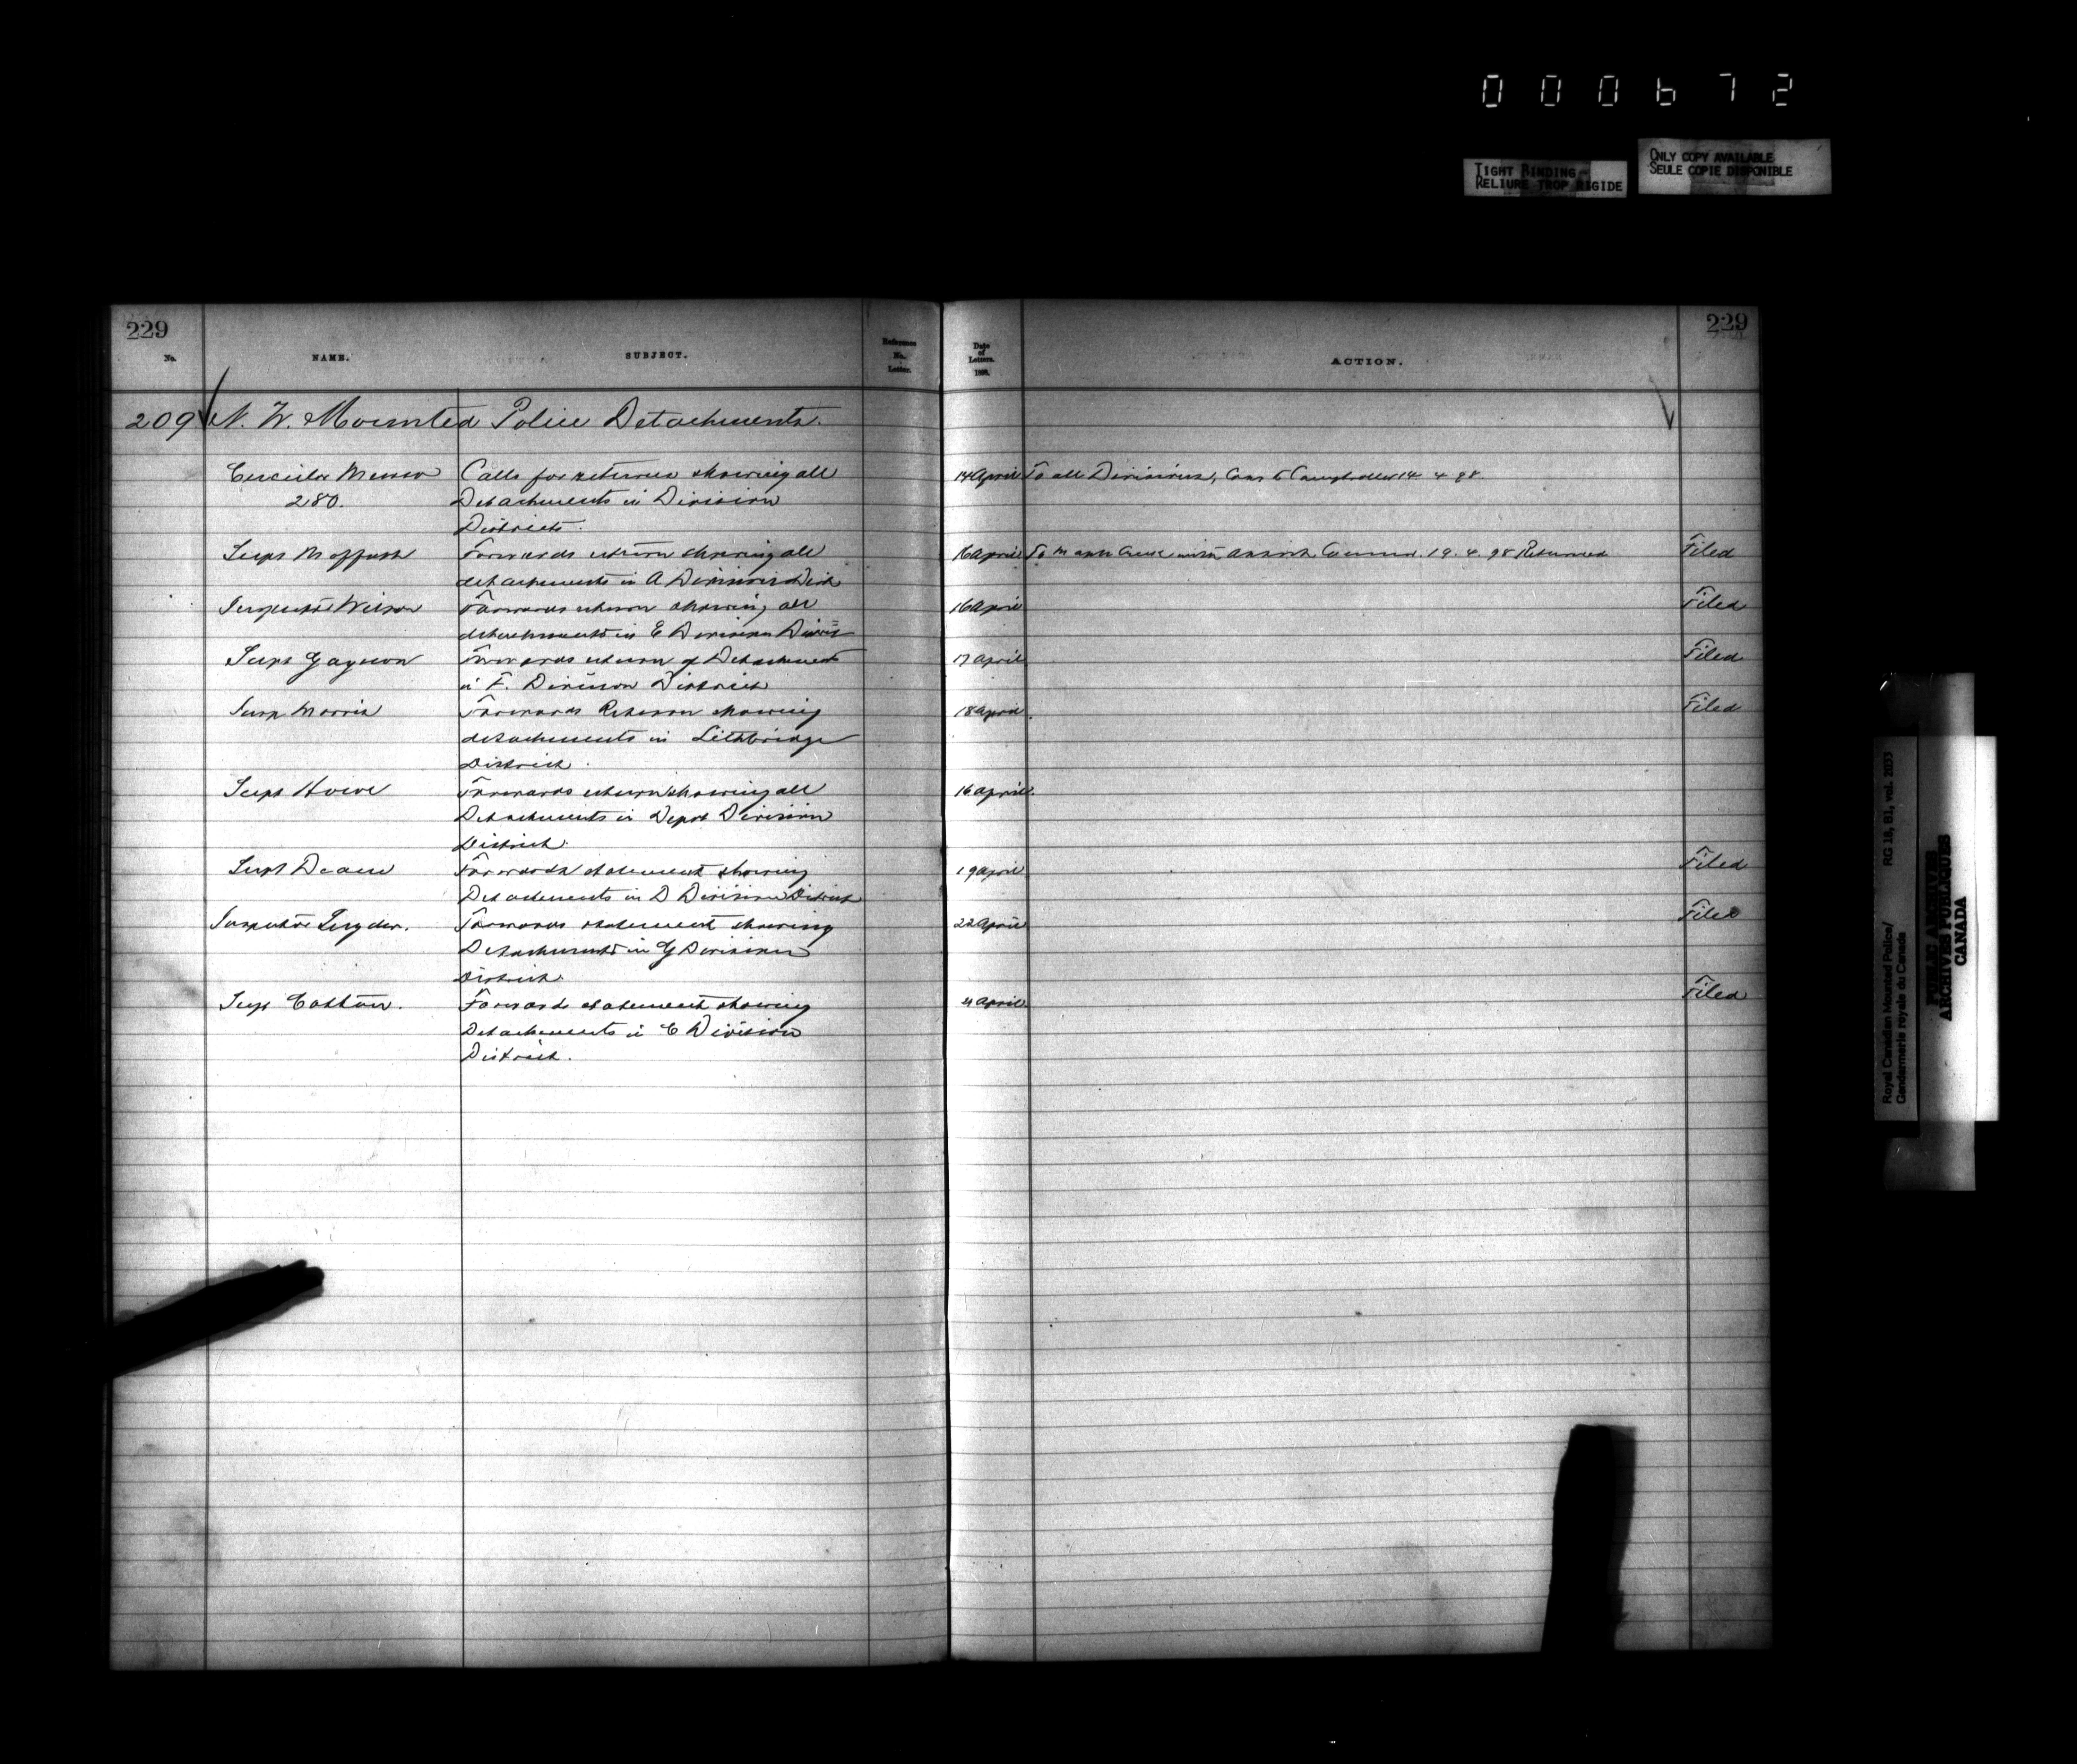 000672
TIGHT BINDING
RELIURE TROP RIGIDE
ONLY COPY AVAILABLE
SEULE COPIE DISPONIBLE
229
No.
NAME.
SUBJECT.
Reference
No.
Letter.
Date
of
Letters.
1898.
ACTION.
229
209 N. W. Mounted Police Detachments.
Circular Memo Calls for returns showing all 14 April To all Divisions, Com & Comptroller 14 4 98.
280. Detachments in Division
Districts.
Supt Moffatt Forwards return showing all 16 April To 19. 4. 98 Returned Filed
detachments in A Division Dist
Inspector Wilson Forwards return showing all 16 April Filed
detachments in E Division
Supt Gagnon Forwards return of Detachments 17 April Filed
in F. Division District
Insp Morris Forwards Return showing 18 April Filed
detachments in Lethbridge
District.
Supt Howe Forwards return showing all 16 April.
Detachments in Depot Division
District.
Supt Deane Forwards statement showing 19 April Filed
Detachments in D Division District
Inspector Snyder. Forwards statement showing 22 April Filed
Detachments in G Division
District.
Supt Cotton. Forwards statement showing April Filed
Detachments in C Division
District.
Royal Canadian Mounted Police/ RG 18, B1, vol. 2033
Gendarmerie royale du Canada
PUBLIC ARCHIVES
ARCHIVES PUBLIQUES
CANADA